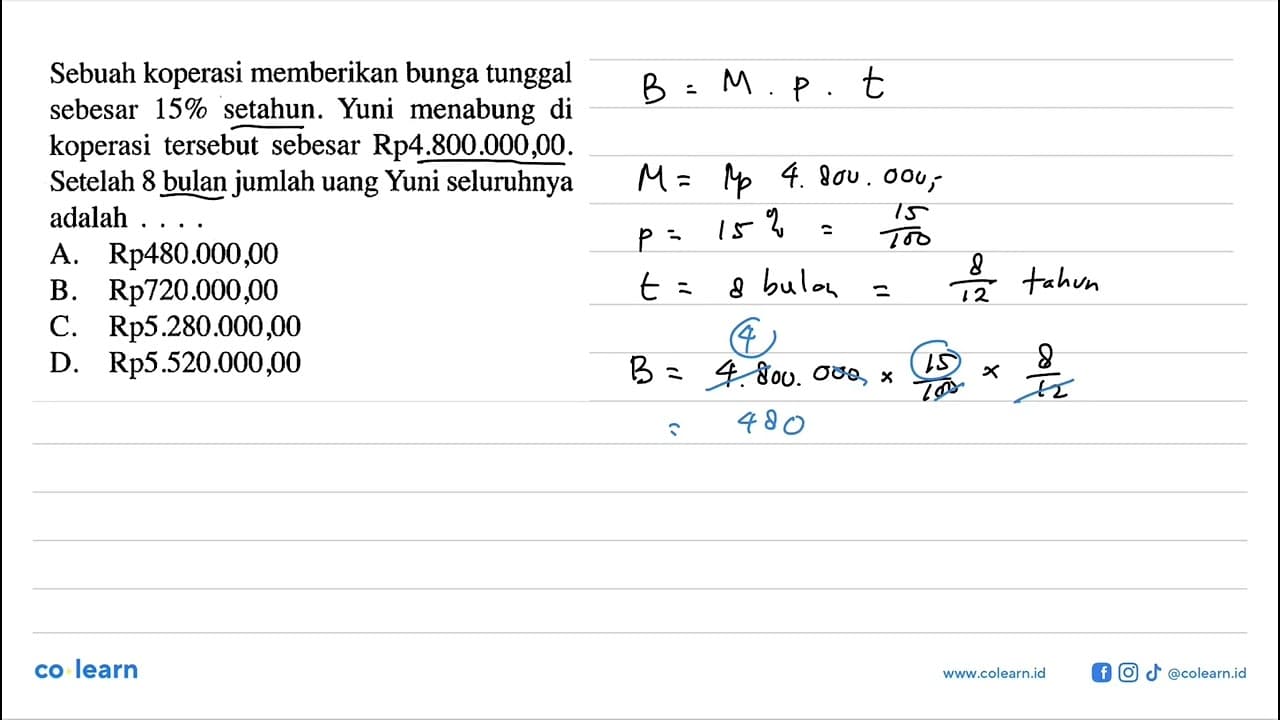 Sebuah koperasi memberikan bunga tunggal
sebesar 15% setahun. Yuni menabung di
koperasi tersebut sebesar Rp4.800.000,00.
Setelah 8 bulan jumlah uang Yuni seluruhnya
adalah . . . .
A. Rp480.000,00
B. Rp720.000,00
C. Rp5.280.000,00
D. Rp5.520.000,00
B = M . p . t
M = Rp 4.800.000,-
p = 15% = 15/100
t = 8 bulan = 8/12 tahun
4
B = 4.800.000, × 15/100 × 8/12
= 480
co learn
www.colearn.id
@colearn.id